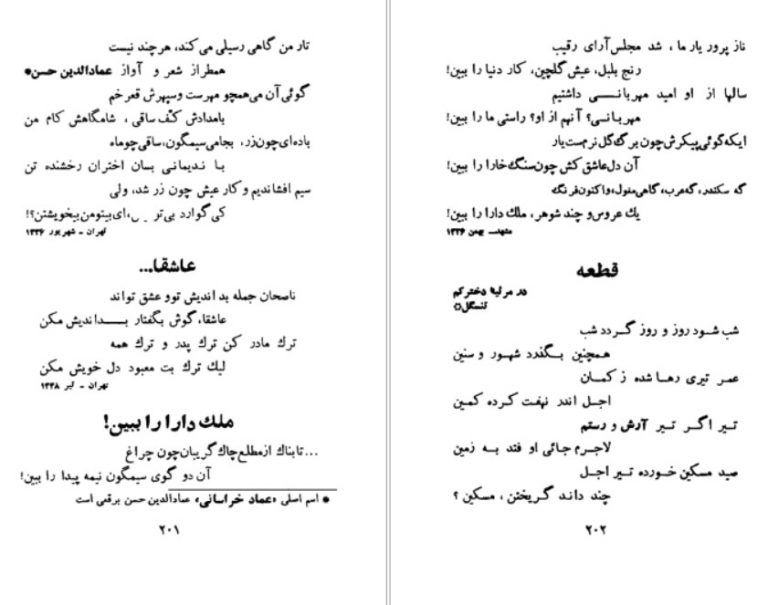 تار من گاهی رسیلی می‌کند، هرچند نیست
همطراز شعر و آواز عمادالدین حسن*
گوئی آن می همچو مهرست و سپهرش قعر خم
بامدادش کف ساقی، شامگاهش کام من
باده‌ای چون زر، بجامی سیمگون، ساقی چو ماه
با ندیمانی بسان اختران رخشنده تن
سیم افشاندیم و کار عیش چون زر شد، ولی
کی گوارد بی‌تو ، ای بیتو من بیخویشتن؟!
تهران - شهریور ۱۳۳۶
عاشقا...
ناصحان جمله بد اندیش تو و عشق تواند
عاشقا، گوش بگفتار بــداندیش مکن
ترك مادر کن ترك پدر و ترك همه
لیك ترك بت معبود دل خویش مکن
تهران - تیر ۱۳۳۸
ملك دارا را ببین!
...تابناك از مطلع چاك گریبان چون چراغ
آن دو گوی سیمگون نیمه پیدا را ببین!
* اسم اصلی «عماد خراسانی» عمادالدین حسن برقعی است
۲۰۱
ناز پرور یار ما، شد مجلس آرای رقیب
رنج بلبل، عیش گلچین، کار دنیا را ببین!
سالها از او امید مهربانــی داشتیم
مهربانی؟ آنهم از او؟ راستی ما را ببین!
ایکه گوئی پیکرش چون برگ گل نرم‌ست یار
آن دل عاشق کش چون سنگ خارا را ببین!
گه سکندر، گه عرب، گاهی مغول، واکنون فرنگ
یك عروس و چند شوهر، ملك دارا را ببین!
مشهد- بهمن ۱۳۳۶
قطعه
در مرثیهٔ دخترکم
تنسگل☼
شب شود روز و روز گــردد شب
همچنین بگذرد شهور و سنین
عمر تیری رها شده ز کمان
اجل اندر نهفت کرده کمین
تیر اگر تیر آرش و رستم
لاجرم جائی او فتد به زمین
صید مسکین خورده تیر اجل
چند داند گریختن، مسکین؟
۲۰۲